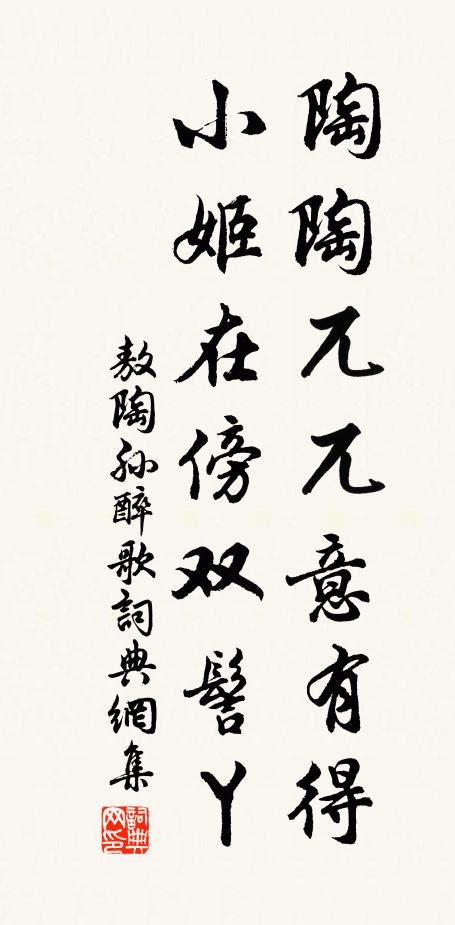 陶陶兀兀意有得
小姬在傍双髻丫
敖陶孙醉歌詞典網集
詞典网印